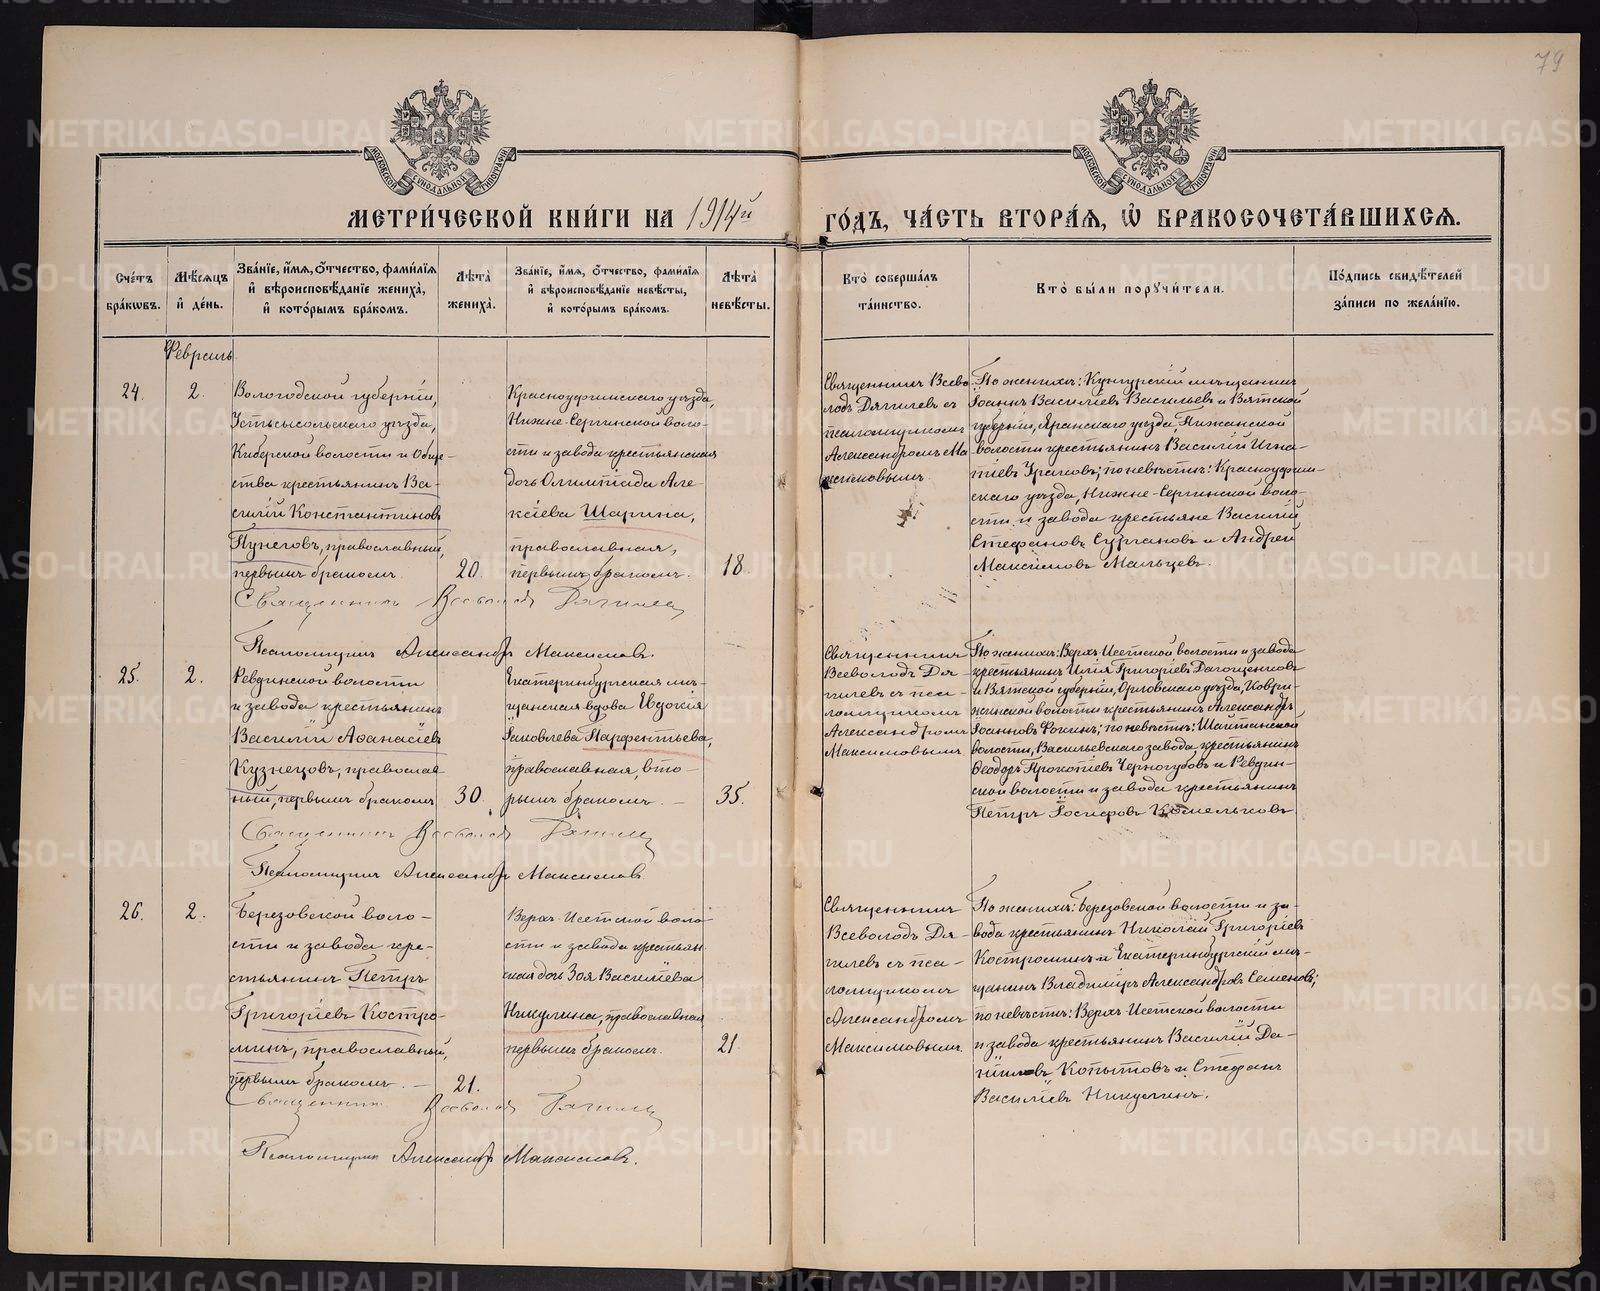 79
МОСКОВСКОЙ СѴНОДАЛЬНОЙ ТИПОГРАФІИ
МОСКОВСКОЙ СѴНОДАЛЬНОЙ ТИПОГРАФІИ
МЕТРИ́ЧЕСКОЙ КНИ́ГИ НА 1914й
ГО́ДЪ, ЧА́СТЬ ВТОРА́Я, Ѽ БРАКОСОЧЕТА́ВШИХСЯ.
Сче́тъ
бра́кѡвъ.
Мѣ́сяцъ
и҆ де́нь.
Зва́нїе, и҆́мя, ѻ҆́тчество, фами́лїя
и҆ вѣроисповѣ́данїе жениха̀,
и҆ кото́рымъ бра́комъ.
Лѣта̀
жениха̀.
Зва́нїе, и҆́мя, ѻ҆́тчество, фами́лїя
и҆ вѣроисповѣ́данїе невѣ́сты,
и҆ кото́рымъ бра́комъ.
Лѣта̀
невѣ́сты.
Кто̀ соверша́лъ
та́инство.
Кто̀ бы́ли порꙋчи́тели.
По́дпись свидѣ́телей
за́писи по жела́нїю.
Февраль.
24.
2.
Вологодской губерніи,
Устьсысольскаго уѣзда,
Киберской волости и Обще-
ства крестьянинъ Ва-
силій Константиновъ
Пунеговъ, православный,
первымъ бракомъ.
20.
Красноуфимскаго уѣзда,
Нижне-Сергинской воло-
сти и завода крестьянская
дочь Олимпіада Але-
ксіева Шарина,
православная,
первымъ бракомъ.
18.
Священникъ Всево-
лодъ Дягилевъ съ
псаломщикомъ
Александромъ Ма-
ксимовымъ.
По женихѣ: Кунгурскій мѣщанинъ
Іоаннъ Василіевъ Васильевъ и Вятской
губерніи, Яранскаго уѣзда, Пижанской
волости крестьянинъ Василій Игна-
тіевъ Ураковъ; по невѣстѣ: Красноуфим-
скаго уѣзда, Нижне-Сергинской воло-
сти и завода крестьяне Василій
Стефановъ Сургановъ и Андрей
Максимовъ Мальцевъ.
Священникъ Всеволодъ Дягилевъ
Псаломщикъ Александръ Максимовъ.
25.
2.
Ревдинской волости
и завода крестьянинъ
Василій Аѳанасіевъ
Кузнецовъ, православ-
ный, первымъ бракомъ
30
Екатеринбургская мѣ-
щанская вдова Евдокія
Іаковлева Парфентьева,
православная, вто-
рымъ бракомъ. —
35.
Священникъ
Всеволодъ Дя-
гилевъ съ пса-
ломщикомъ
Александромъ
Максимовымъ
По женихѣ: Верхъ Исетской волости и завода
крестьянинъ Илія Григоріевъ
и Вятской губерніи, Орловскаго уѣзда, Коври-
жинской волости крестьянинъ Александръ
Іоанновъ Фокинъ; по невѣстѣ: Шайтанской
волости, Васильевскаго завода, крестьянинъ
Ѳеодоръ Прокопіевъ Черногубовъ и Ревдин-
ской волости и завода крестьянинъ
Петръ Іосифовъ Комельковъ.
Священникъ Всеволодъ Дягилевъ
Псаломщикъ Александръ Максимовъ
26.
2.
Березовской воло-
сти и завода кре-
стьянинъ Петръ
Григоріевъ Костро-
минъ, православный,
первымъ бракомъ. —
21.
Верхъ-Исетской воло-
сти и завода крестьян-
ская дочь Зоя Василіева
Никулина, православная
первымъ бракомъ.
21.
Священникъ
Всеволодъ Дя-
гилевъ съ пса-
ломщикомъ
Александромъ
Максимовымъ.
По женихѣ: Березовской волости и за-
вода крестьянинъ Николай Григоріевъ
Костроминъ и Екатеринбургскій мѣ-
щанинъ Владиміръ Александровъ Семеновъ;
по невѣстѣ: Верхъ Исетской волости
и завода крестьянинъ Василій Да-
ніиловъ Копытовъ и Стефанъ
Василіевъ Никулинъ.
Священникъ Всеволодъ Дягилевъ
Псаломщикъ Александръ Максимовъ.
METRIKI.GASO-URAL.RU